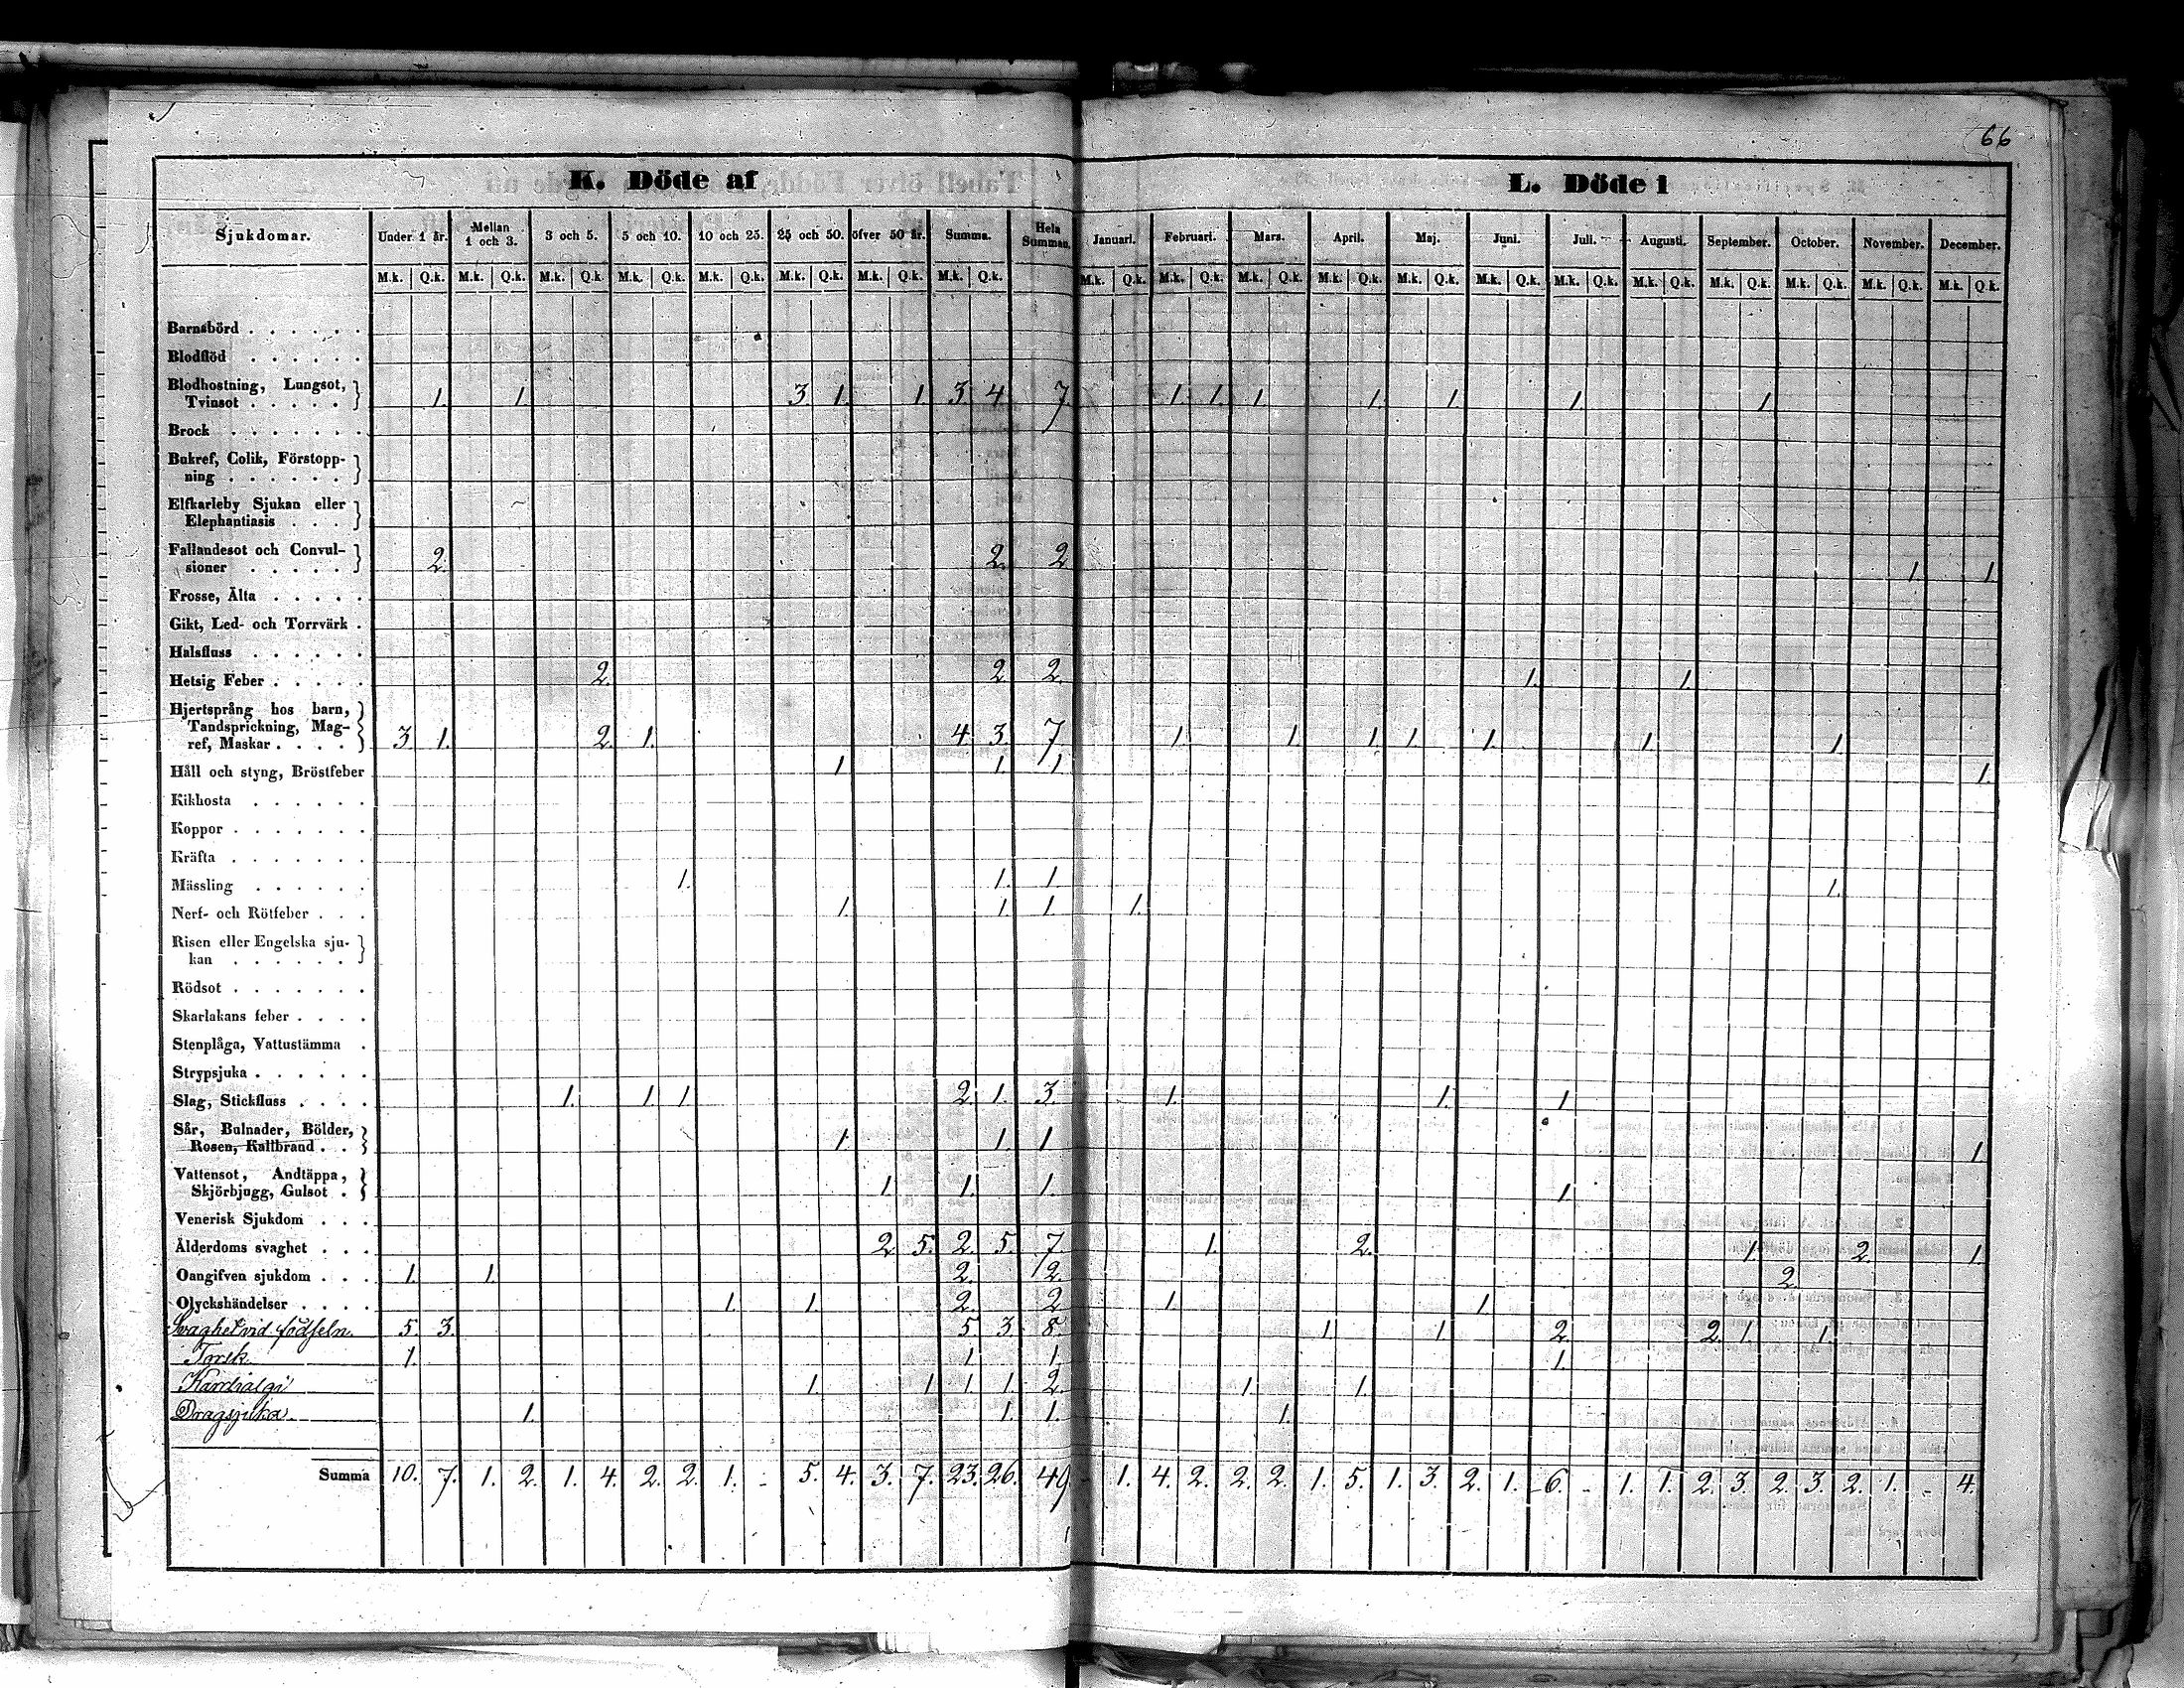 66
K. Döde af
L. Döde i
Sjukdomar. Under 1 år. Mellan 1 och 3. 3 och 5. 5 och 10. 10 och 25. 25 och 50. öfver 50 år. Summa. Hela Summan. Januari. Februari. Mars. April. Maj. Juni. Juli. Augusti. September. October. November. December.
M.k. Q.k. M.k. Q.k. M.k. Q.k. M.k. Q.k. M.k. Q.k. M.k. Q.k. M.k. Q.k. M.k. Q.k. M.k. Q.k. M.k. Q.k. M.k. Q.k. M.k. Q.k. M.k. Q.k. M.k. Q.k. M.k. Q.k. M.k. Q.k. M.k. Q.k. M.k. Q.k. M.k. Q.k. M.k. Q.k.
Barnsbörd . . . . . .
Blodflöd . . . . . .
Blodhostning, Lungsot,
Tvinsot . . . . . 1. 1. 3. 1. 1. 3. 4. 7. 1. 1. 1. 1. 1. 1. 1.
Brock . . . . . . .
Bukref, Colik, Förstopp-
ning . . . . . .
Elfkarleby Sjukan eller
Elephantiasis . . .
Fallandesot och Convul-
sioner . . . . . 2. 2. 2 1. 1.
Frosse, Älta . . . . .
Gikt, Led- och Torrvärk .
Halsfluss . . . . . .
Hetsig Feber . . . . . 2. 2. 2. 1. 1.
Hjertsprång hos barn,
Tandsprickning, Mag-
ref, Maskar . . . . 3. 1. 2. 1. 4. 3. 7. 1. 1. 1. 1. 1. 1. 1.
Håll och styng, Bröstfeber 1. 1. 1. 1.
Kikhosta . . . . . .
Koppor . . . . . . .
Kräfta . . . . . . .
Mässling . . . . . . 1. 1. 1. 1.
Nerf- och Rötfeber . . . 1. 1. 1. 1.
Risen eller Engelska sju-
kan . . . . . .
Rödsot . . . . . . .
Skarlakans feber . . . .
Stenplåga, Vattustämma .
Strypsjuka . . . . . .
Slag, Stickfluss . . . . 1. 1. 1. 2. 1. 3. 1. 1. 1.
Sår, Bulnader, Bölder,
Rosen, Kallbrand . . 1. 1. 1. 1.
Vattensot, Andtäppa,
Skjörbjugg, Gulsot . 1. 1. 1. 1.
Venerisk Sjukdom . . .
Ålderdoms svaghet . . . 2. 5. 2. 5. 7. 1. 2. 1. 2. 1.
Oangifven sjukdom . . . 1. 1. 2. 2. 2.
Olyckshändelser . . . . 1. 1. 2. 2. 1. 1.
Svaghet vid födseln. 5. 3. 5. 3. 8. 1. 1. 2. 2. 1. 1.
Torsk 1. 1. 1. 1.
Kardialgi 1. 1. 1. 1. 2. 1. 1.
Dragsjuka. 1. 1. 1. 1.
Summa 10. 7. 1. 2. 1. 4. 2. 2. 1. - 5. 4. 3. 7. 23. 26. 49 - 1. 4. 2. 2. 2. 1. 5. 1. 3. 2. 1. 6. - 1. 1. 2. 3. 2. 3. 2. 1. - 4.